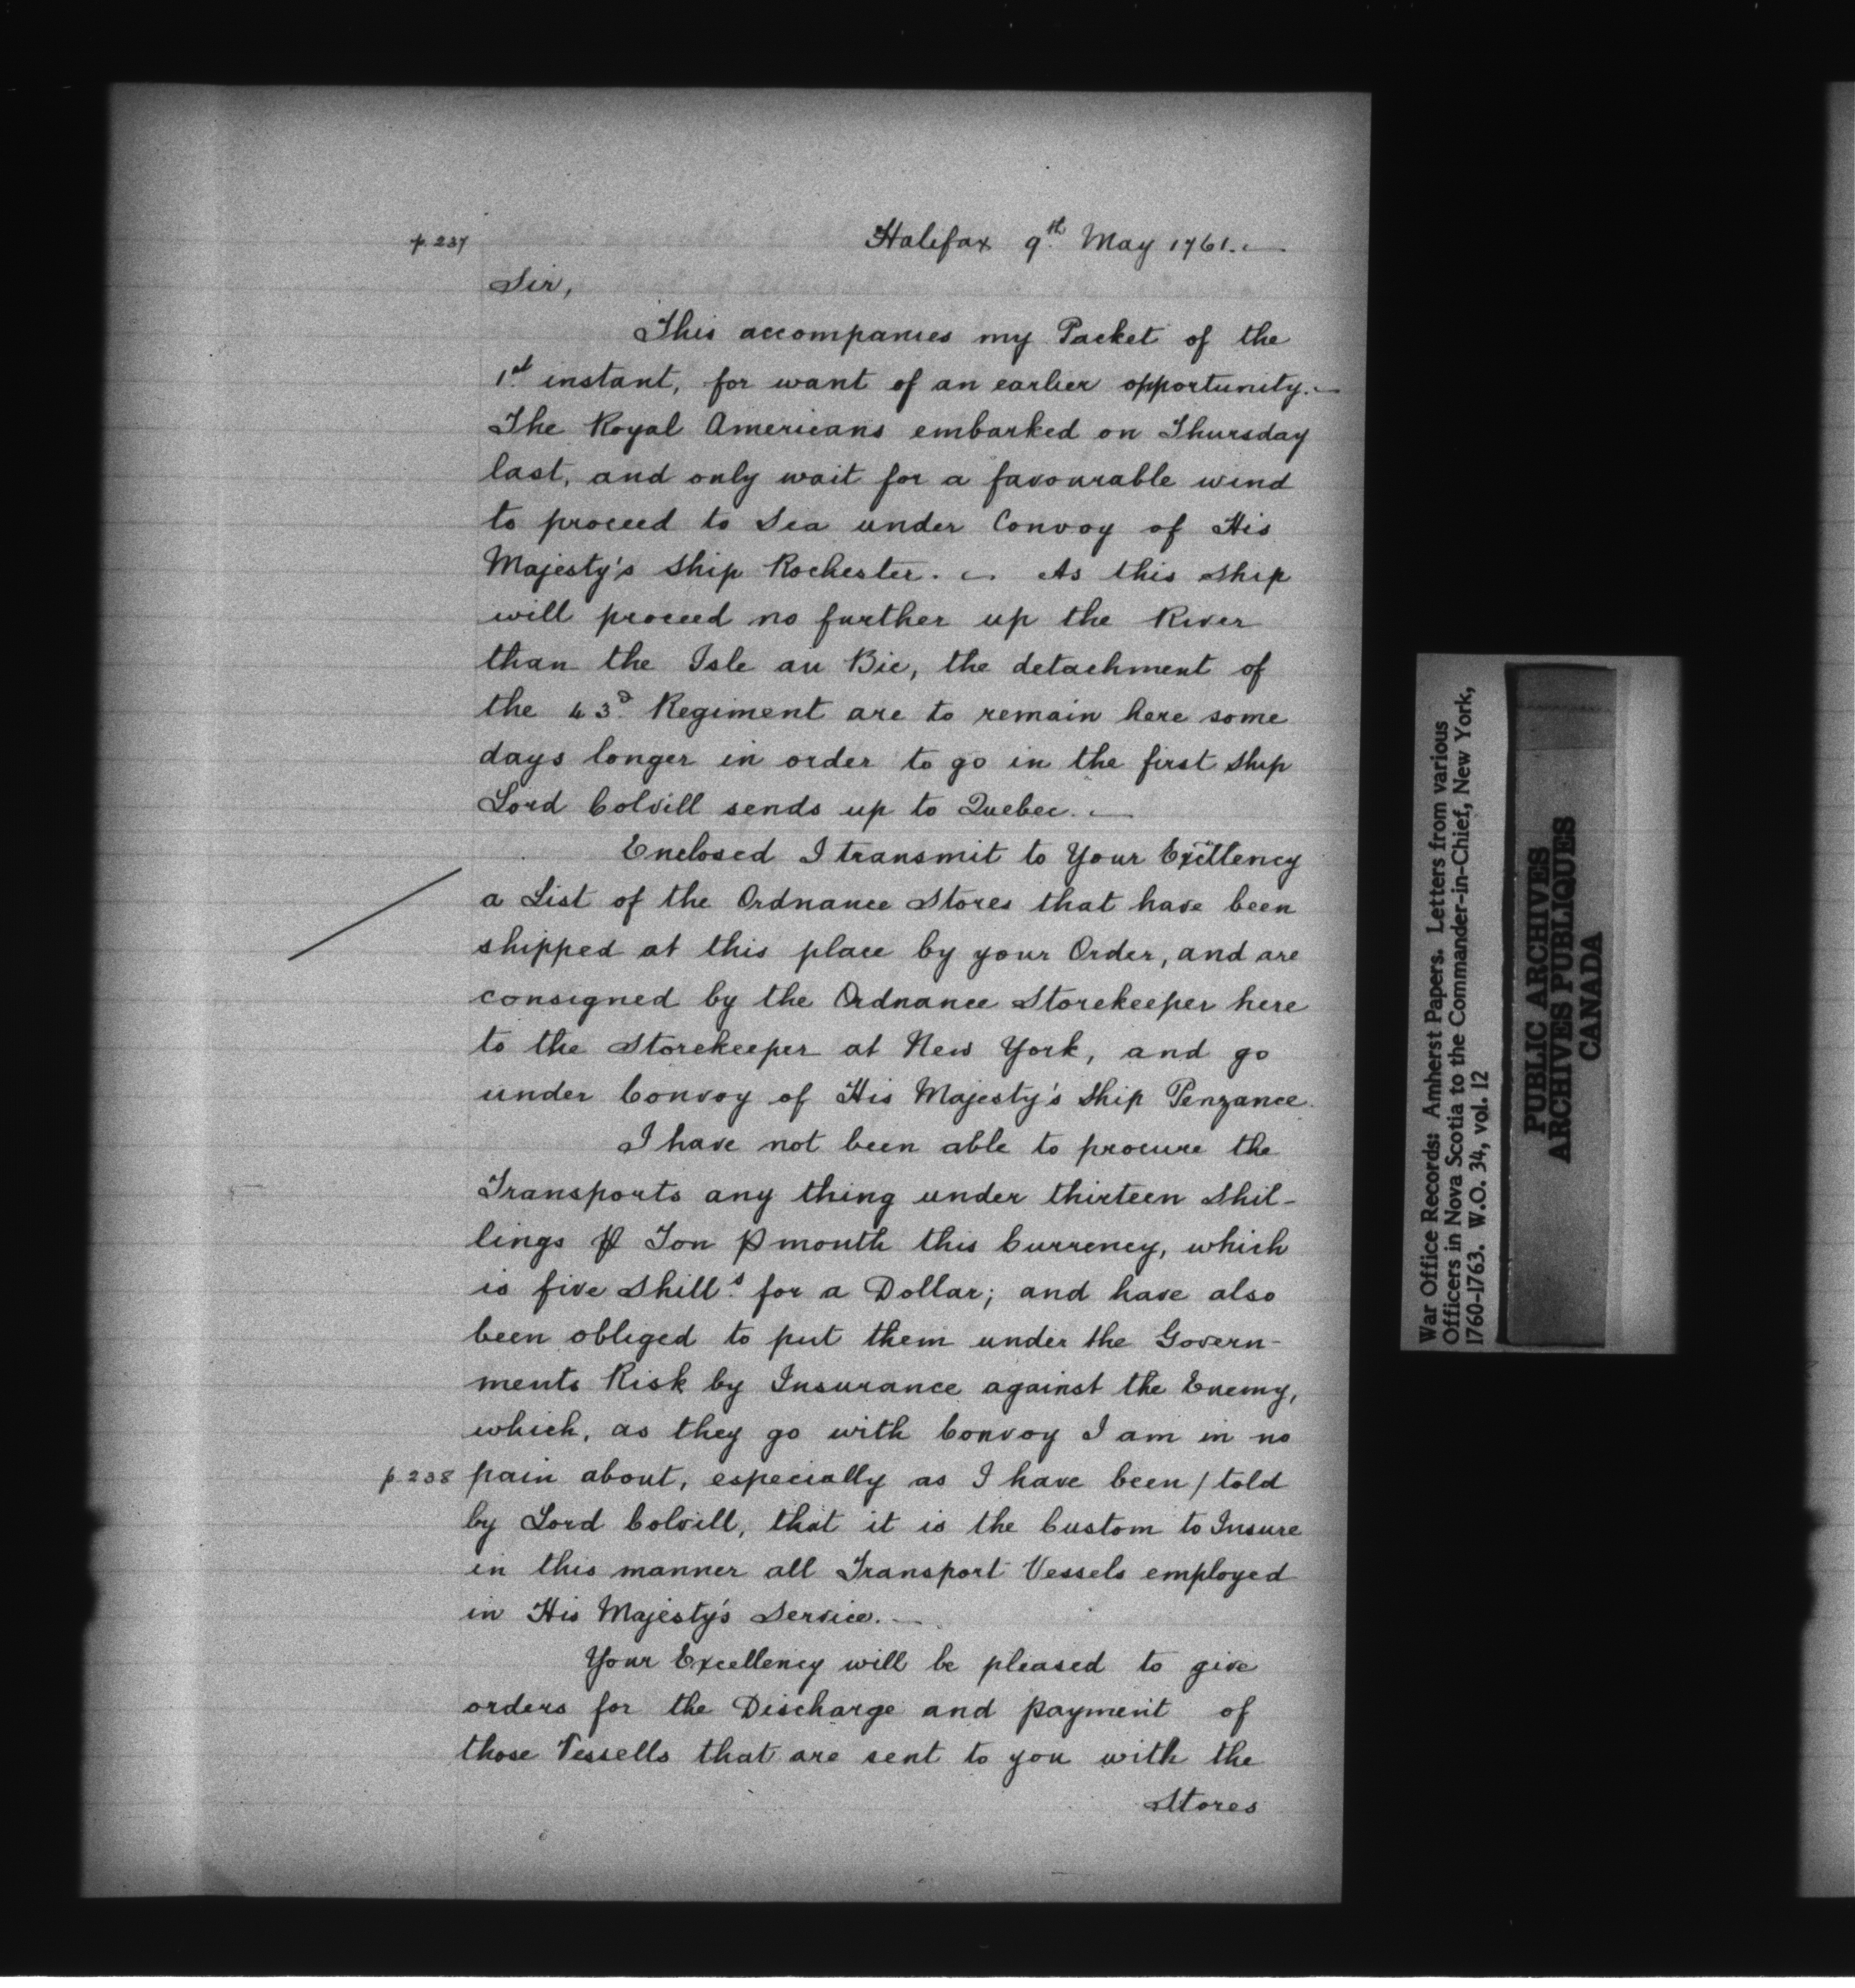 p. 237
Halifax 9th. May 1761. —
Sir,
This accompanies my Packet of the
1st. instant, for want of an earlier opportunity. —
The Royal Americans embarked on Thursday
last, and only wait for a favourable wind
to proceed to Sea under Convoy of His
Majesty's Ship Rochester. — As this Ship
will proceed no further up the River
than the Isle au Bic, the detachment of
the 43d. Regiment are to remain here some
days longer in order to go in the first Ship
Lord Colvill sends up to Quebec. —
Enclosed I transmit to Your Excellency
a List of the Ordnance Stores that have been
shipped at this place by your Order, and are
consigned by the Ordnance Storekeeper here
to the Storekeeper at New York, and go
under Convoy of His Majesty's Ship Penzance.
I have not been able to procure the
Transports any thing under thirteen Shil-
lings ⅌ Ton ⅌ month this Currency, which
is five Shills. for a Dollar; and have also
been obliged to put them under the Govern-
ments Risk by Insurance against the Enemy,
which, as they go with Convoy I am in no
p. 238 pain about, especially as I have been / told
by Lord Colvill, that it is the Custom to Insure
in this manner all Transport Vessels employed
in His Majesty's Service. —
Your Excellency will be pleased to give
orders for the Discharge and payment of
those Vessells that are sent to you with the
Stores
War Office Records: Amherst Papers. Letters from various
Officers in Nova Scotia to the Commander-in-Chief, New York,
1760-1763. W.O. 34, vol. 12
PUBLIC ARCHIVES
ARCHIVES PUBLIQUES
CANADA